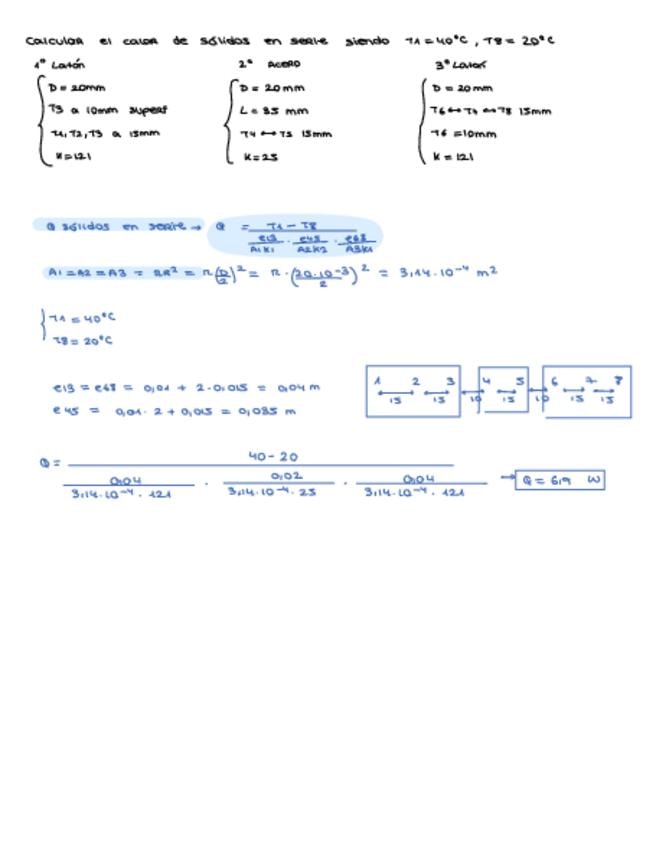 Calcular el calor de sólidos en serie siendo T1 = 40°C, T8 = 20°C
1° Latón
D = 20mm
T3 a 10mm superf
T1, T2, T3 a 15mm
K = 121
2° Acero
D = 20mm
L = 35 mm
T4 ↔ T5 15mm
K = 25
3° Latón
D = 20mm
T6 ↔ T7 ↔ T8 15mm
T6 = 10mm
K = 121
Q sólidos en serie → Q = T1 - T8 / e13/A1K1 · e45/A2K2 · e68/A3K1
A1 = A2 = A3 = πR² = π(D/2)² = π · (20·10⁻³/2)² = 3,14·10⁻⁴ m²
T1 = 40°C
T8 = 20°C
e13 = e68 = 0,01 + 2·0,015 = 0,04 m
e45 = 0,01·2 + 0,015 = 0,035 m
1 2 3 4 5 6 7 8
15 15 10 15 10 15 15
Q = 40 - 20 / 0,04/3,14·10⁻⁴·121 · 0,02/3,14·10⁻⁴·25 · 0,04/3,14·10⁻⁴·121 → Q = 6,9 W